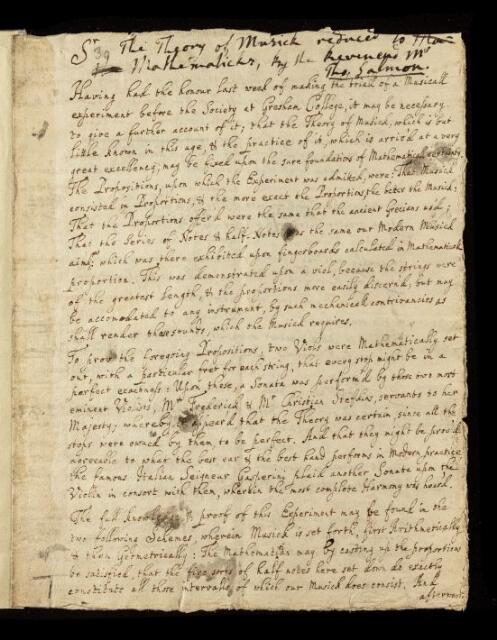 Sr
39
The Theory of Musick reduced to the
Mathematicks, by the Reverend Mr
Tho. Salmon.
Having had the honour last week of making the trial of a Musicall
experiment before the Society at Gresham College, it may be necessary
to give a further account of it; that the Theory of Musick, which is but
little known in this age, & the practice of it, which is arriv'd at a very
great excellency, may be fixed upon the sure foundations of Mathematical certainty.
The Propositions, upon which the Experiment was admitted, were: That Musick
consisted in Proportions, & the more exact the Proportions, the better the Musick:
That the Proportions offer'd were the same that the ancient Grecians used;
That the Series of Notes & half-Notes was the same our Modern Musick
aims: which was there exhibited upon fingerboards calculated in Mathematicall
proportion. This was demonstrated upon a viol, because the strings were
of the greatest length, & the proportions more easily discernd; but may
be accomodated to any instrument, by such mechanical contrivances as
shall render those sounds, which the Musick requires.
To prove the foregoing Propositions, two Viols were Mathematically set
out, with a particular fret for each string, that every stop might be in a
perfect exactness: Upon these, a Sonata was perform'd by those two most
eminent Violists, Mr Frederick & Mr Christian Stefkins, servants to her
Majesty; whereby it appeard that the Theory was certain, since all the
stops were owned by them, to be perfect. And that they might be prov'd
agreeable to what the best ear & the best hand performs in Modern practice
the famous Italian Seigneur Gasperini plaid another Sonata upon the
Violin in consort with them, wherein the most compleat Harmony was heard.
The full & proof of this Experiment may be found in the
two following Schemes, wherein Musick is set forth, first Arithmetically
& then Geometrically: The Mathematician may by casting up the proportions
be satisfied, that the five sorts of half notes here set down do exactly
constitute all those intervals, of which our Musick does consist. And
afterwards